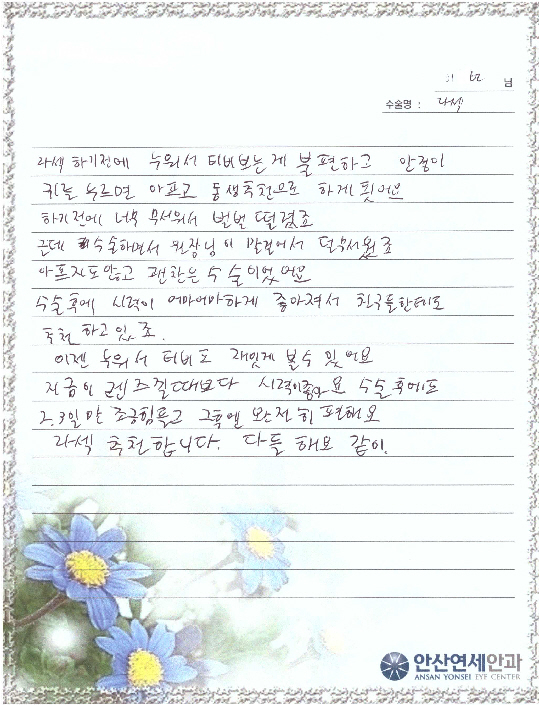 님
수술명 : 라섹
라섹 하기전에 누워서 티비보는게 불편하고 안경이
귀를 누르면 아프고 동생추천으로 하게 됫어요
하기전에 너무 무서워서 벌벌 떨렸죠
근데 수술하면서 원장님이 말걸어서 덜무서웠죠
아프지도않고 괜찬은 수술이었어요
수술후에 시력이 어마어마하게 좋아져서 친구들한테도
추천 하고있죠.
이젠 누워서 티비도 재밌게 볼수 있어요
지금이 렌즈낄때보다 시력이좋아요 수술후에도
2.3일만 조금힘들고 그후엔 완전히 편해요
라섹 추천합니다. 다들 해보 같이.
안산연세안과
ANSAN YONSEI EYE CENTER